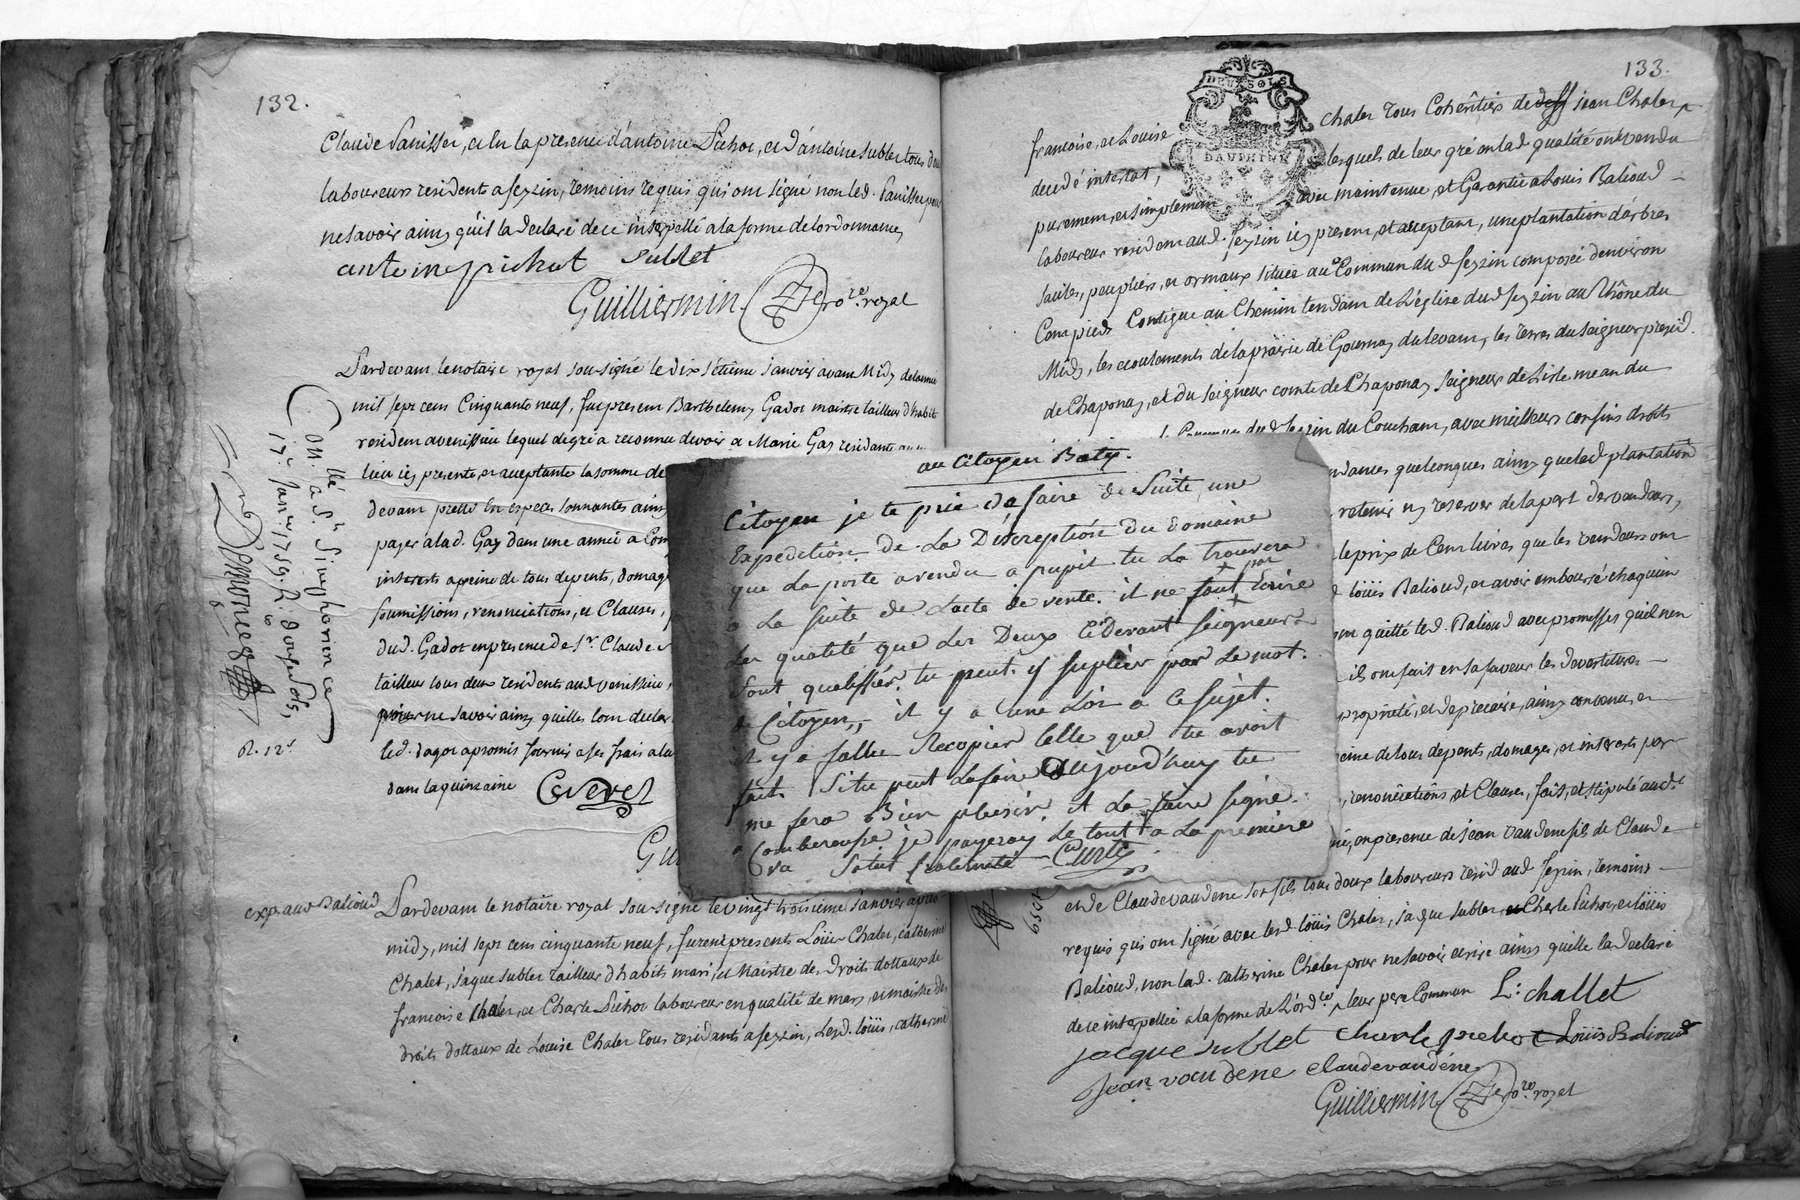 132.
Claude Vanisset, et en la presence d'antoine Pichot, et d'antoine sublet tous deux
laboureurs resident a feyzin, temoins requis qui ont signé non led. Vanisset pour
ne savoir ainsy qu'il la declaré de ce interpellé a la forme de lordonnance,
antoine pichot sublet
Guilliermin no.re royal
Pardevant le notaire royal sousigné le dix sétieme janvier avant Midy de lannée
mil sept cens Cinquante neuf, fut present Barthelemy Gadot maistre tailleur d'habits
resident a venissieu lequel de gré a reconnu devoir a Marie Gay residante au
lieu icy presente, et acceptante la somme de
devant presté en especes sonnantes ainsy
payer a lad. Gay dans une année a
interests a peine de tous depents, domag
soumissions, renonciations, et Clauses,
dud. Gadot en presence de s.r Claude
tailleur tous deux residents aud venissieu,
pour ne savoir ainsy quilles lont declar
led. a promis fournir a ses frais a la
dans la quinzaine
Con.llé a S.t Sinphorien ce
17e Janer. 1759. R. douze sols,
R. 12s
exp. aud Balioud
Pardevant le notaire royal sousigné le vingt troisieme janvier apres
midy, mil sept cens cinquante neuf, furent presents Loüis Chalet, catherine
Chalet, jaque sublet tailleur d'habits mari, et Maistre des Droits dottaux de
francoise Chalet, et Charle Pichot laboureur en qualité de mary, et maistre des
droits dottaux de Louise Chalet tous residants a feyzin, Lesd. loüis, catherine
au Citoyen
Citoyen je te prie de faire de Suite, une
Expedition de La Description du domaine
que La porte a vendu a tu La trouvera
a La suite de Lacte de vente. il ne faut par Ecrire
Les qualité que Les Deux Cidevant Seigneur
Sont qualiffiés. tu peut y suplier par Le mot.
de Citoyen,, il y a une Loi a Ce sujet.
il y a fallu Recopier Celle que tu avoit
fait. Si tu peut La faire Aujourd'huy tu
me fera Bien plaisir. et La faire signé.
a je payeray Le tout a La premiere
Salut fraternité
133.
DEUX SOLS
DAUPHINÉ
francoise, et Louise chalet tous Cohéritiers de jean Chalet
decedé intestat, lesquels de leur gré en lad qualité ont vendu
purement, et simplement avec maintenue, et Garantie a Louis Balioud
laboureur resident aud. feyzin icy present, et acceptant, une plantation d'arbres
saules, peupliers, et ormaux située au Commun dud feyzin composée denviron
Cens pieds Contigue au Chemin tendant de L'église dud feyzin au Rhône du
Midy, les ecoulements de la prairie de Gournay du levant, les terres du seigneur presid.
de Chaponay, et du seigneur comte de Chaponay seigneur de Lisle mean du
Commun dud feyzin du Couchant, avec meilleurs confins droits
dances quelconques ainsy que lad plantation
retenir ny reserver de la part des vendeurs,
le prix de Cent livres que les vendeurs ont
loüis Balioud, et avoir emboursé chaqu'un
ont quitté led. Balioud avec promesses quil n'en
ils ont fait en sa faveur les devestitures
propriété, et de precaire, ainsy convenu, et
eine de tous depents, domages, et interests par
, renonciations, et Clauses, fait, et stipulé aud.t
né, en presence de jean vaudene fils de Claude
et de Claude vaudene son fils tous deux laboureurs resid aud feyzin, temoins
requis qui ont signé avec lesd loüis Chalet, jaque sublet, et Charle Pichot, et loüis
Balioud, non lad. catherine Chalet pour ne savoir ecrire ainsy quelle la declaré
de ce interpellée a la forme de L'ord.ce leur pere Commun L: challet
jacque sublet charle pichot Loüis Balioud
Jean vaudene claude vaudéne
Guilliermin no.re royal